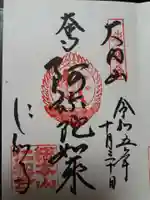 大内山
令和五年
十月三十日
奉
阿弥陀如来
仁和寺